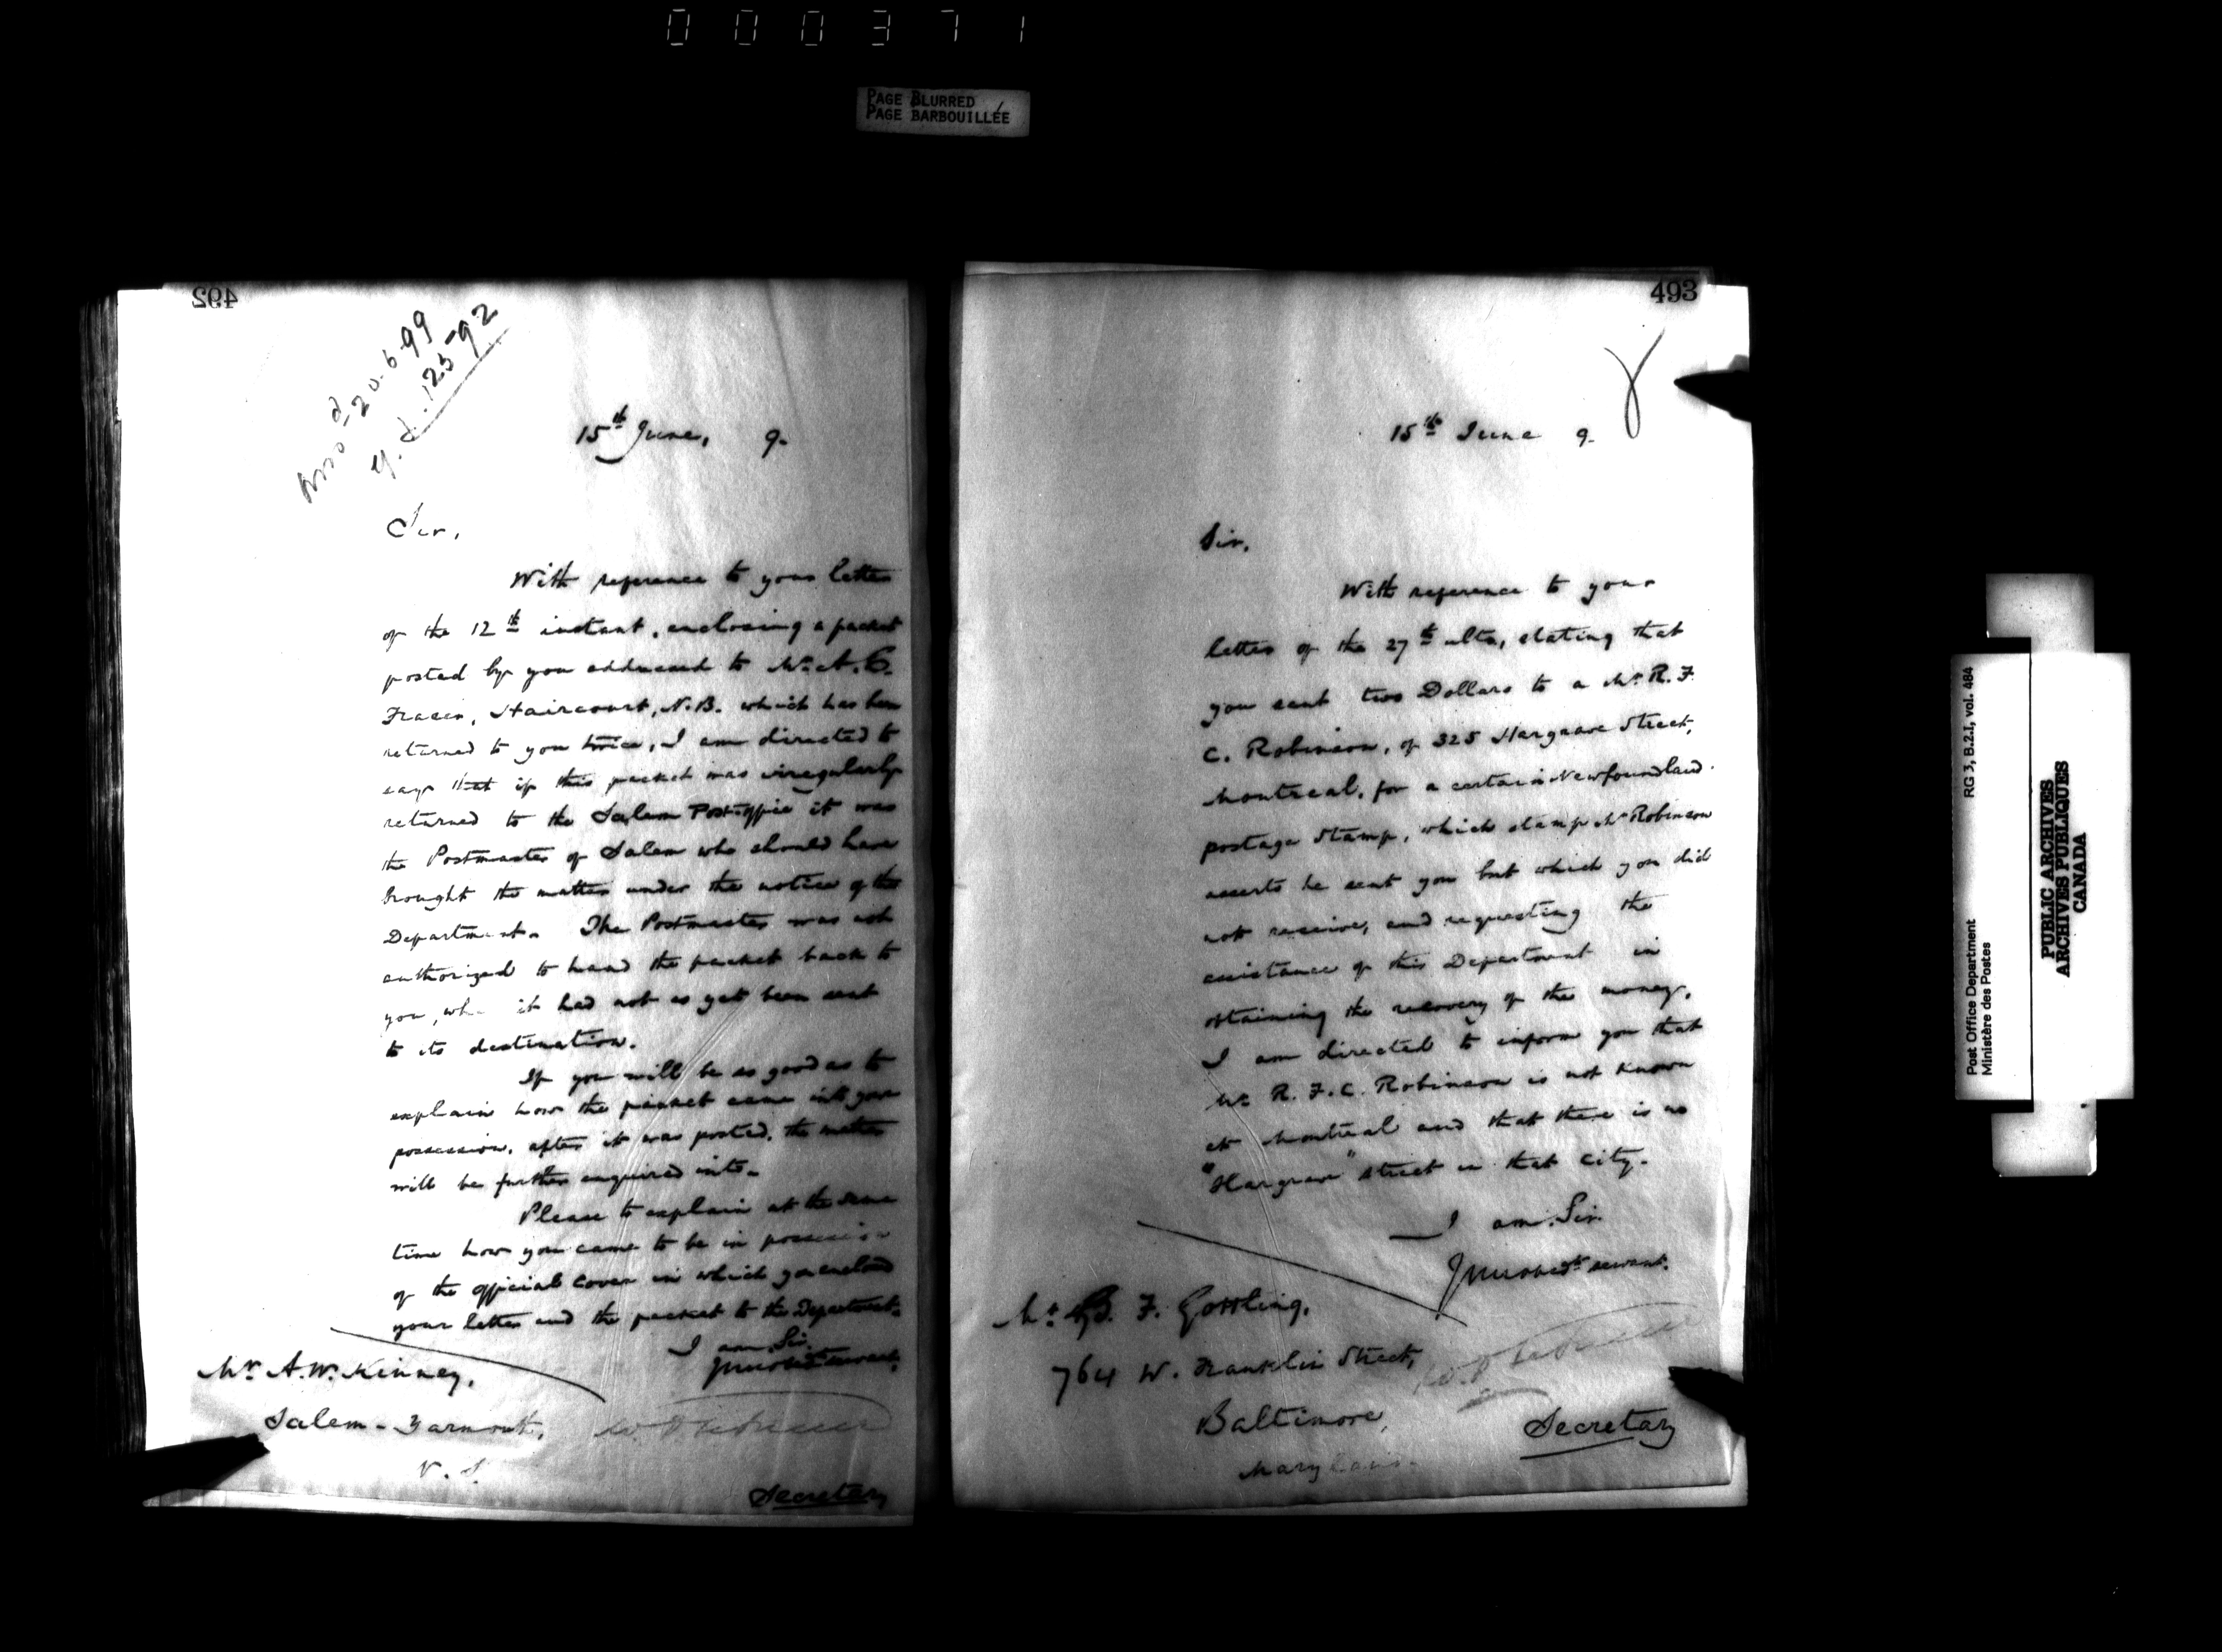 000371
PAGE BLURRED
PAGE BARBOUILLÉE
492
20.6.99
15th June, 9.
Sir,
With reference to your letter
of the 12th instant, enclosing a packet
posted by you addressed to Mr. A. C.
Fraser, Haircourt, N.B. which has been
returned to you twice, I am directed to
say that if this packet was irregularly
returned to the Salem Post-office it was
the Postmaster of Salem who should have
brought the matter under the notice of the
Department. The Postmaster was not
authorized to hand the packet back to
you, it had not as yet been sent
to its destination.
If you will be as good as to
explain how the packet came into your
possession, after it was posted, the matter
will be further enquired into.
Please to explain at the same
time how you came to be in possession
of the official cover in which you enclosed
your letter and the packet to the Department.
I am, Sir,
Your obedt servant,
Mr. A. W. Kinney,
Salem - Yarmouth,
N. S.
Secretary
493
15th June 9.
Sir,
With reference to your
letter of the 27th ulto, stating that
you sent two Dollars to a Mr. R. F.
C. Robinson, of 325 Hargrave Street,
Montreal, for a certain Newfoundland
postage stamp, which stamp Mr Robinson
asserts he sent you but which you did
not receive, and requesting the
assistance of this Department in
obtaining the recovery of the money,
I am directed to inform you that
Mr R. F. C. Robinson is not known
at Montreal and that there is no
"Hargrave" street in that city.
I am, Sir,
Your obedt servant.
Mr. B. F. Gottling,
764 W. Franklin Street,
Baltimore,
Maryland.
Secretary
Post Office Department
Ministère des Postes
RG 3, B.2.I, vol. 484
PUBLIC ARCHIVES
ARCHIVES PUBLIQUES
CANADA